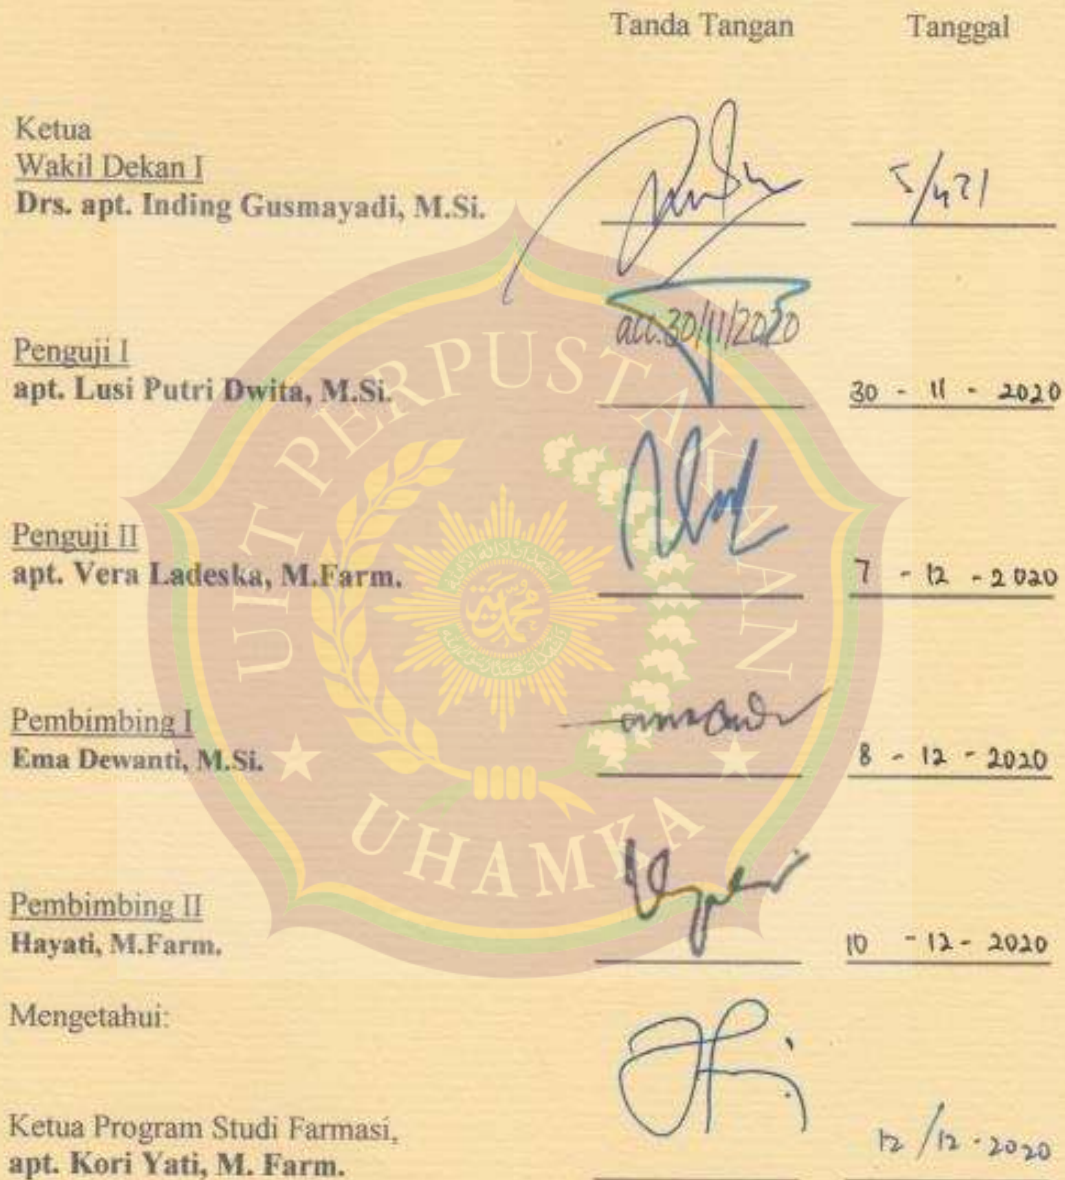 Tanda Tangan Tanggal
Ketua
Wakil Dekan I
Drs. apt. Inding Gusmayadi, M.Si.
acc.30/11/2020
Penguji I
apt. Lusi Putri Dwita, M.Si.
30 - 11 - 2020
Penguji II
apt. Vera Ladeska, M.Farm.
7 - 12 - 2020
Pembimbing I
Ema Dewanti, M.Si.
8 - 12 - 2020
Pembimbing II
Hayati, M.Farm.
10 - 12 - 2020
Mengetahui:
Ketua Program Studi Farmasi,
apt. Kori Yati, M. Farm.
12/12-2020
UPT PERPUSTAKAAN
UHAMKA